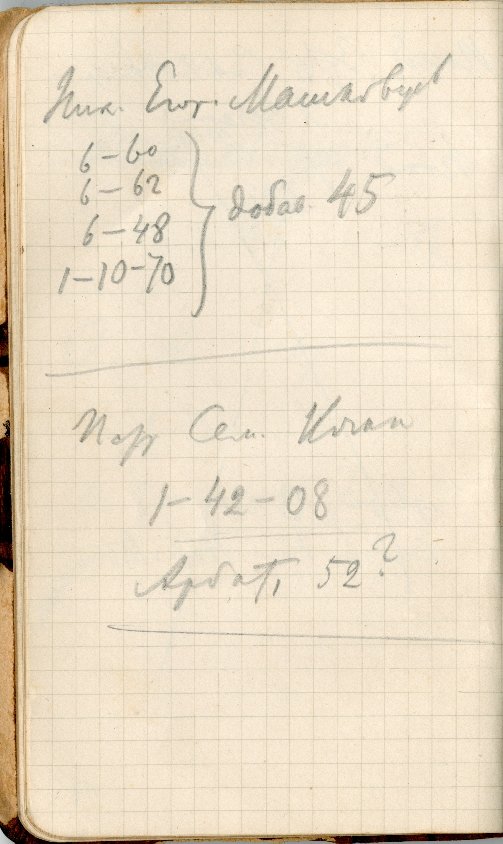 Ник. Егор. Машковцев
6–60
6–62
6–48
1–10–70
добав. 45
Сем. Коган
1–42–08
Арбат, 52?